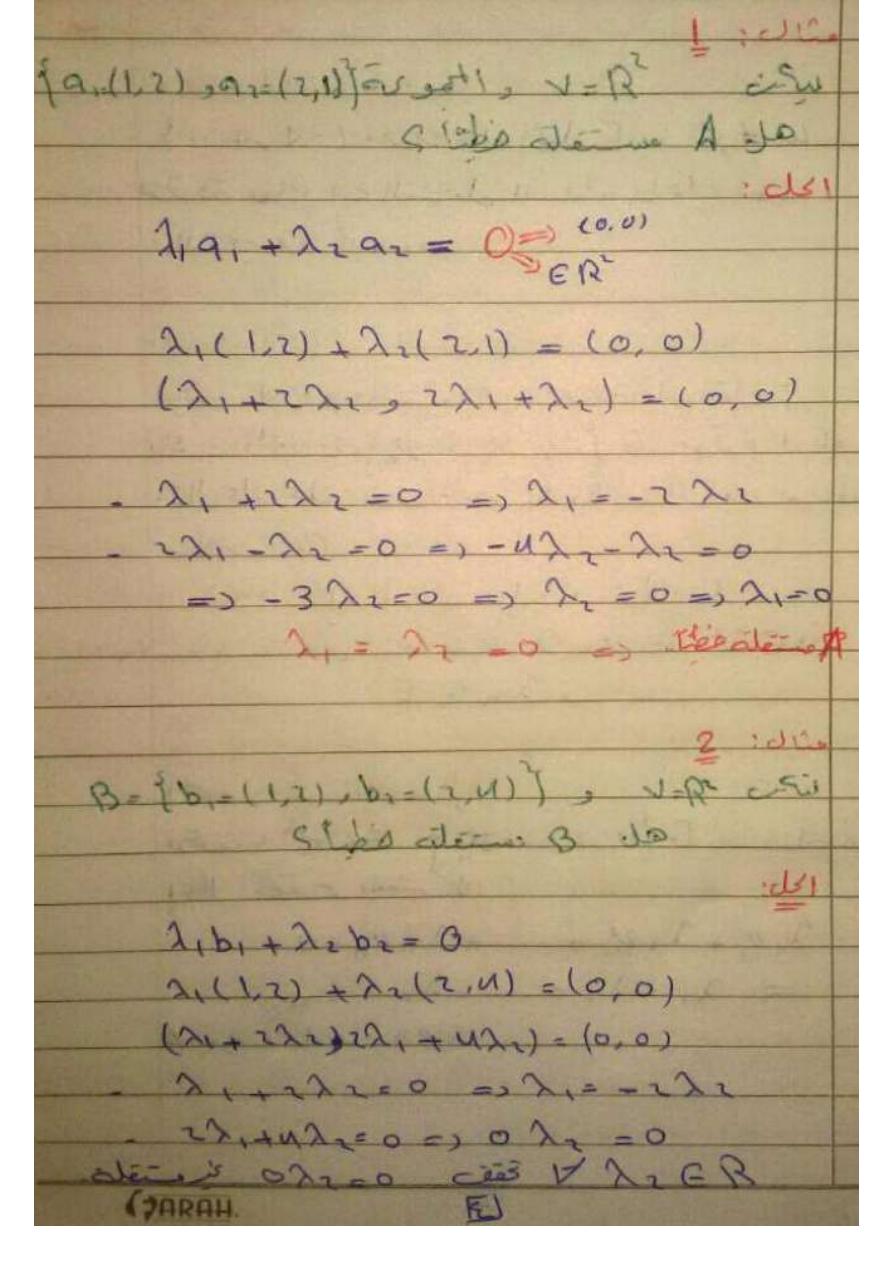 مثال: 1
ليكن V = R² , المجموعة {a₁(1,2) , a₂=(2,1)}
هل A مستقلة خطياً؟
الحل:
λ₁a₁ + λ₂a₂ = 0 ⇒ (0,0)
⇒ ∈ R²
λ₁(1,2) + λ₂(2,1) = (0,0)
(λ₁+2λ₂ , 2λ₁+λ₂) = (0,0)
- λ₁ +2λ₂ =0 ⇒ λ₁ = -2λ₂
- 2λ₁ -λ₂ =0 ⇒ -4λ₂ -λ₂ =0
⇒ -3λ₂=0 ⇒ λ₂ =0 ⇒ λ₁=0
λ₁ = λ₂ =0 ⇒ A مستقلة خطياً
مثال: 2
لتكن V=R² , B={b₁=(1,2), b₂=(2,4)}
هل B مستقلة خطياً؟
الحل:
λ₁b₁ + λ₂b₂ = 0
λ₁(1,2) + λ₂(2,4) = (0,0)
(λ₁+2λ₂, 2λ₁+4λ₂) = (0,0)
- λ₁+2λ₂=0 ⇒ λ₁= -2λ₂
- 2λ₁+4λ₂=0 ⇒ 0λ₂ =0
∀ λ₂ ∈ R تحقق 0λ₂=0 غير مستقلة
SARAH.